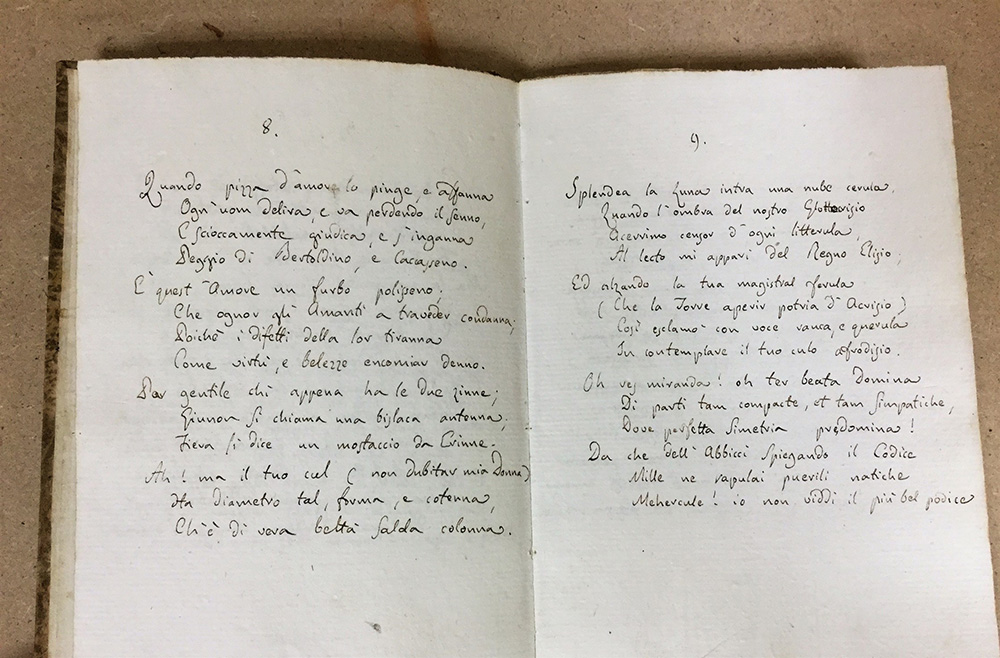 8.
Quando pizza d'amore lo pinge, e affanna
Ogn'uom delira, e va perdendo il senno,
E scioccamente giudica, e s'inganna
Peggio di Bertoldino, e Cacasseno.
E' quest'Amore un furbo poliseno;
Che ognor gli Amanti a travéder condanna;
Poichè i difetti della lor tiranna
Come virtù, e belezze encomiar denno.
Par gentile chi appena ha le due zinne;
Giunon si chiama una bislaca antenna;
Fieva si dice un mostaccio da Erinne.
Ah! ma il tuo cul (non dubitar mia Donna)
Ha diametro tal, forma, e cotenna,
Ch'è di vera beltà salda colonna.
9.
Splendea la Luna intra una nube cerula,
Quando l'ombra del nostro Glottocrisio
Acerrimo censor d'ogni litterula,
Al lecto mi apparì del Regno Elisio;
Ed alzando la tua magistral ferula
(Che la Torre aperir potria d'Acrisio)
Così esclamò con voce rauca, e querula
In contemplare il tuo culo afrodisio.
Oh res miranda! oh ter beata Domina
Di parti tam compacte, et tam simpatiche,
Dove perfetta simetria predomina!
Da che dell'Abbiccì spiegando il Codice
Mille ne vapulai puerili natiche
Mehercule! io non viddi il più bel podice